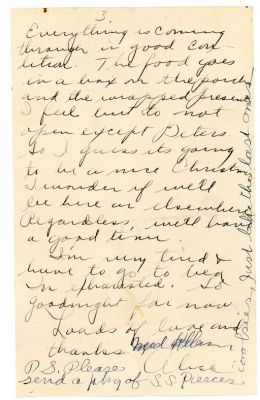 3.
Everything is coming
through in good con-
dition. The food goes
in a box on the porch
and the wrapped presents
I feel but do not
open except Peters.
So I guess its going
to be a nice Christmas
I wonder if we'll
be here or elsewhere
Regardless, we'll have
a good time.
I'm very tired &
have to go to bed
Im exhausted. So
Goodnight for now
Loads of love and
thanks
Alice
P.S. Please
send a pkg of S.S. Pierces
cookies, just like the last ones